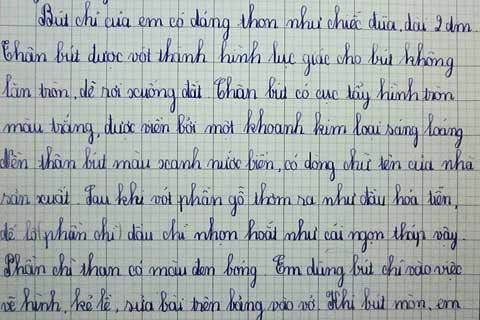 Bút chì của em có dáng thon như chiếc đũa, dai 2 dm.
Thân bút dược vót thanh hình lục giác cho bút không
lăn tròn, dễ rơi xuống dất Thân bút có cục tẩy hình tròn
màu trắng, dược viền bởi một khoanh kim loại sáng loáng
Nền thân bút màu xanh nước biển, có dòng chữ tên của nhà
sản xuất. Sau khi vót phần gỗ thơm ra như dầu hỏa tiễn,
dể lộ (phần chì) dầu chì nhọn hoắt như cái ngọn tháp vậy.
Phần chì than có màu den bóng Em dùng bút chì vào việc
vẽ hình, kẻ lề, sửa bài trên bảng vào vở. Khi bút mòn, em